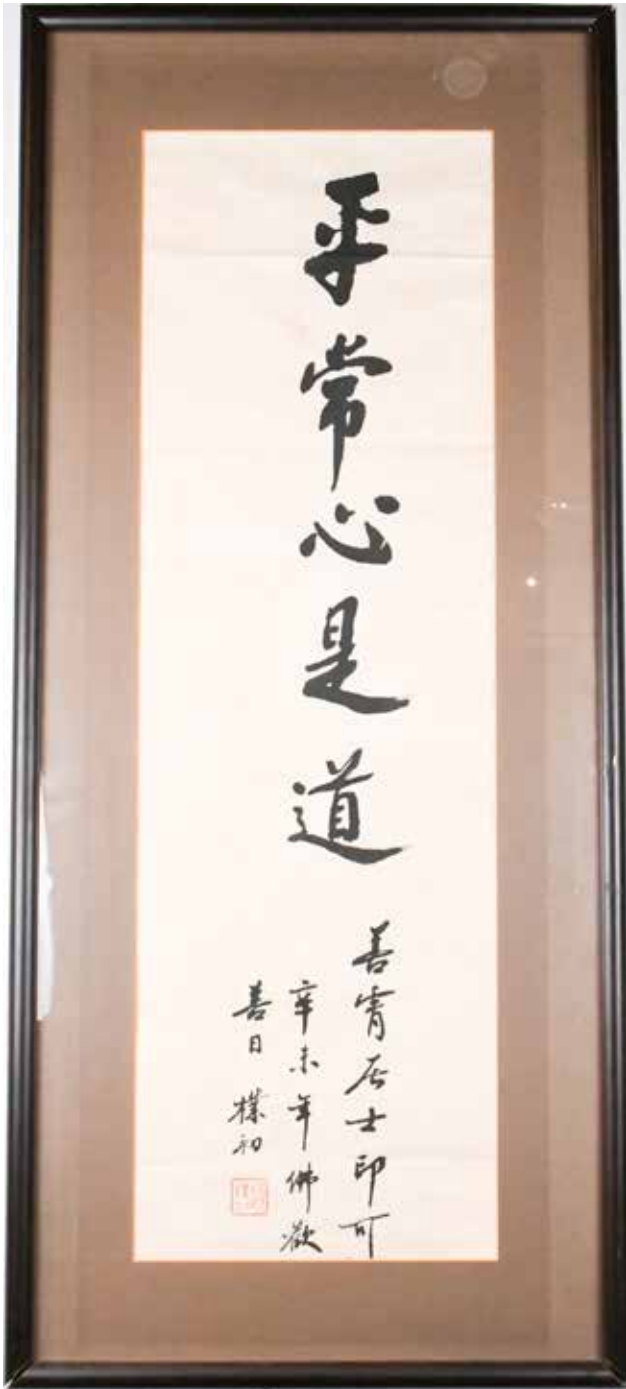 平常心是道
善宵居士印可
辛未年佛歡
喜日 樸初